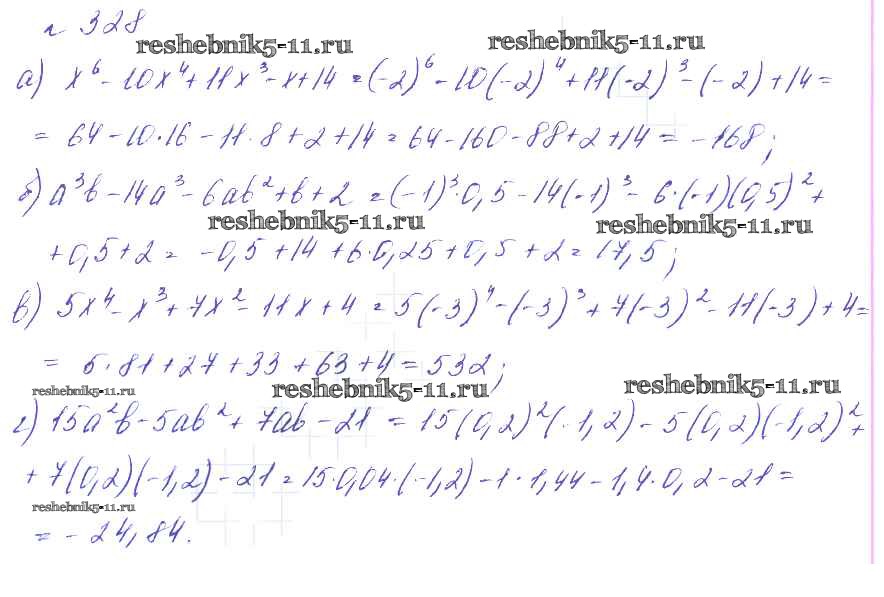 № 328
reshebnik5-11.ru reshebnik5-11.ru
а) x⁶ - 10x⁴ + 11x³ - x + 14 = (-2)⁶ - 10(-2)⁴ + 11(-2)³ - (-2) + 14 =
= 64 - 10·16 - 11·8 + 2 + 14 = 64 - 160 - 88 + 2 + 14 = -168;
б) a³b - 14a³ - 6ab² + b + 2 = (-1)³·0,5 - 14(-1)³ - 6·(-1)(0,5)² +
reshebnik5-11.ru reshebnik5-11.ru
+ 0,5 + 2 = -0,5 + 14 + 6·0,25 + 0,5 + 2 = 17,5;
в) 5x⁴ - x³ + 7x² - 11x + 4 = 5(-3)⁴ - (-3)³ + 7(-3)² - 11(-3) + 4 =
= 5·81 + 27 + 33 + 63 + 4 = 532;
reshebnik5-11.ru reshebnik5-11.ru reshebnik5-11.ru
г) 15a²b - 5ab² + 7ab - 21 = 15(0,2)²(-1,2) - 5(0,2)(-1,2)² +
+ 7(0,2)(-1,2) - 21 = 15·0,04·(-1,2) - 1·1,44 - 1,4·0,2 - 21 =
reshebnik5-11.ru
= -24,84.